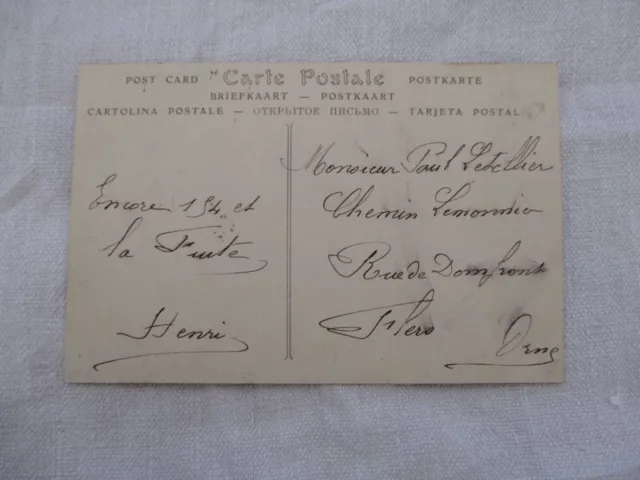 POST CARD "Carte Postale POSTKARTE
BRIEFKAART — POSTKAART
CARTOLINA POSTALE — ОТКРЫТОЕ ПИСЬМО — TARJETA POSTAL
Encore 154 et
la Fuite
Henri
Monsieur Paul Letellier
Chemin Lemonnier
Rue de Domfront
Flers
Orne